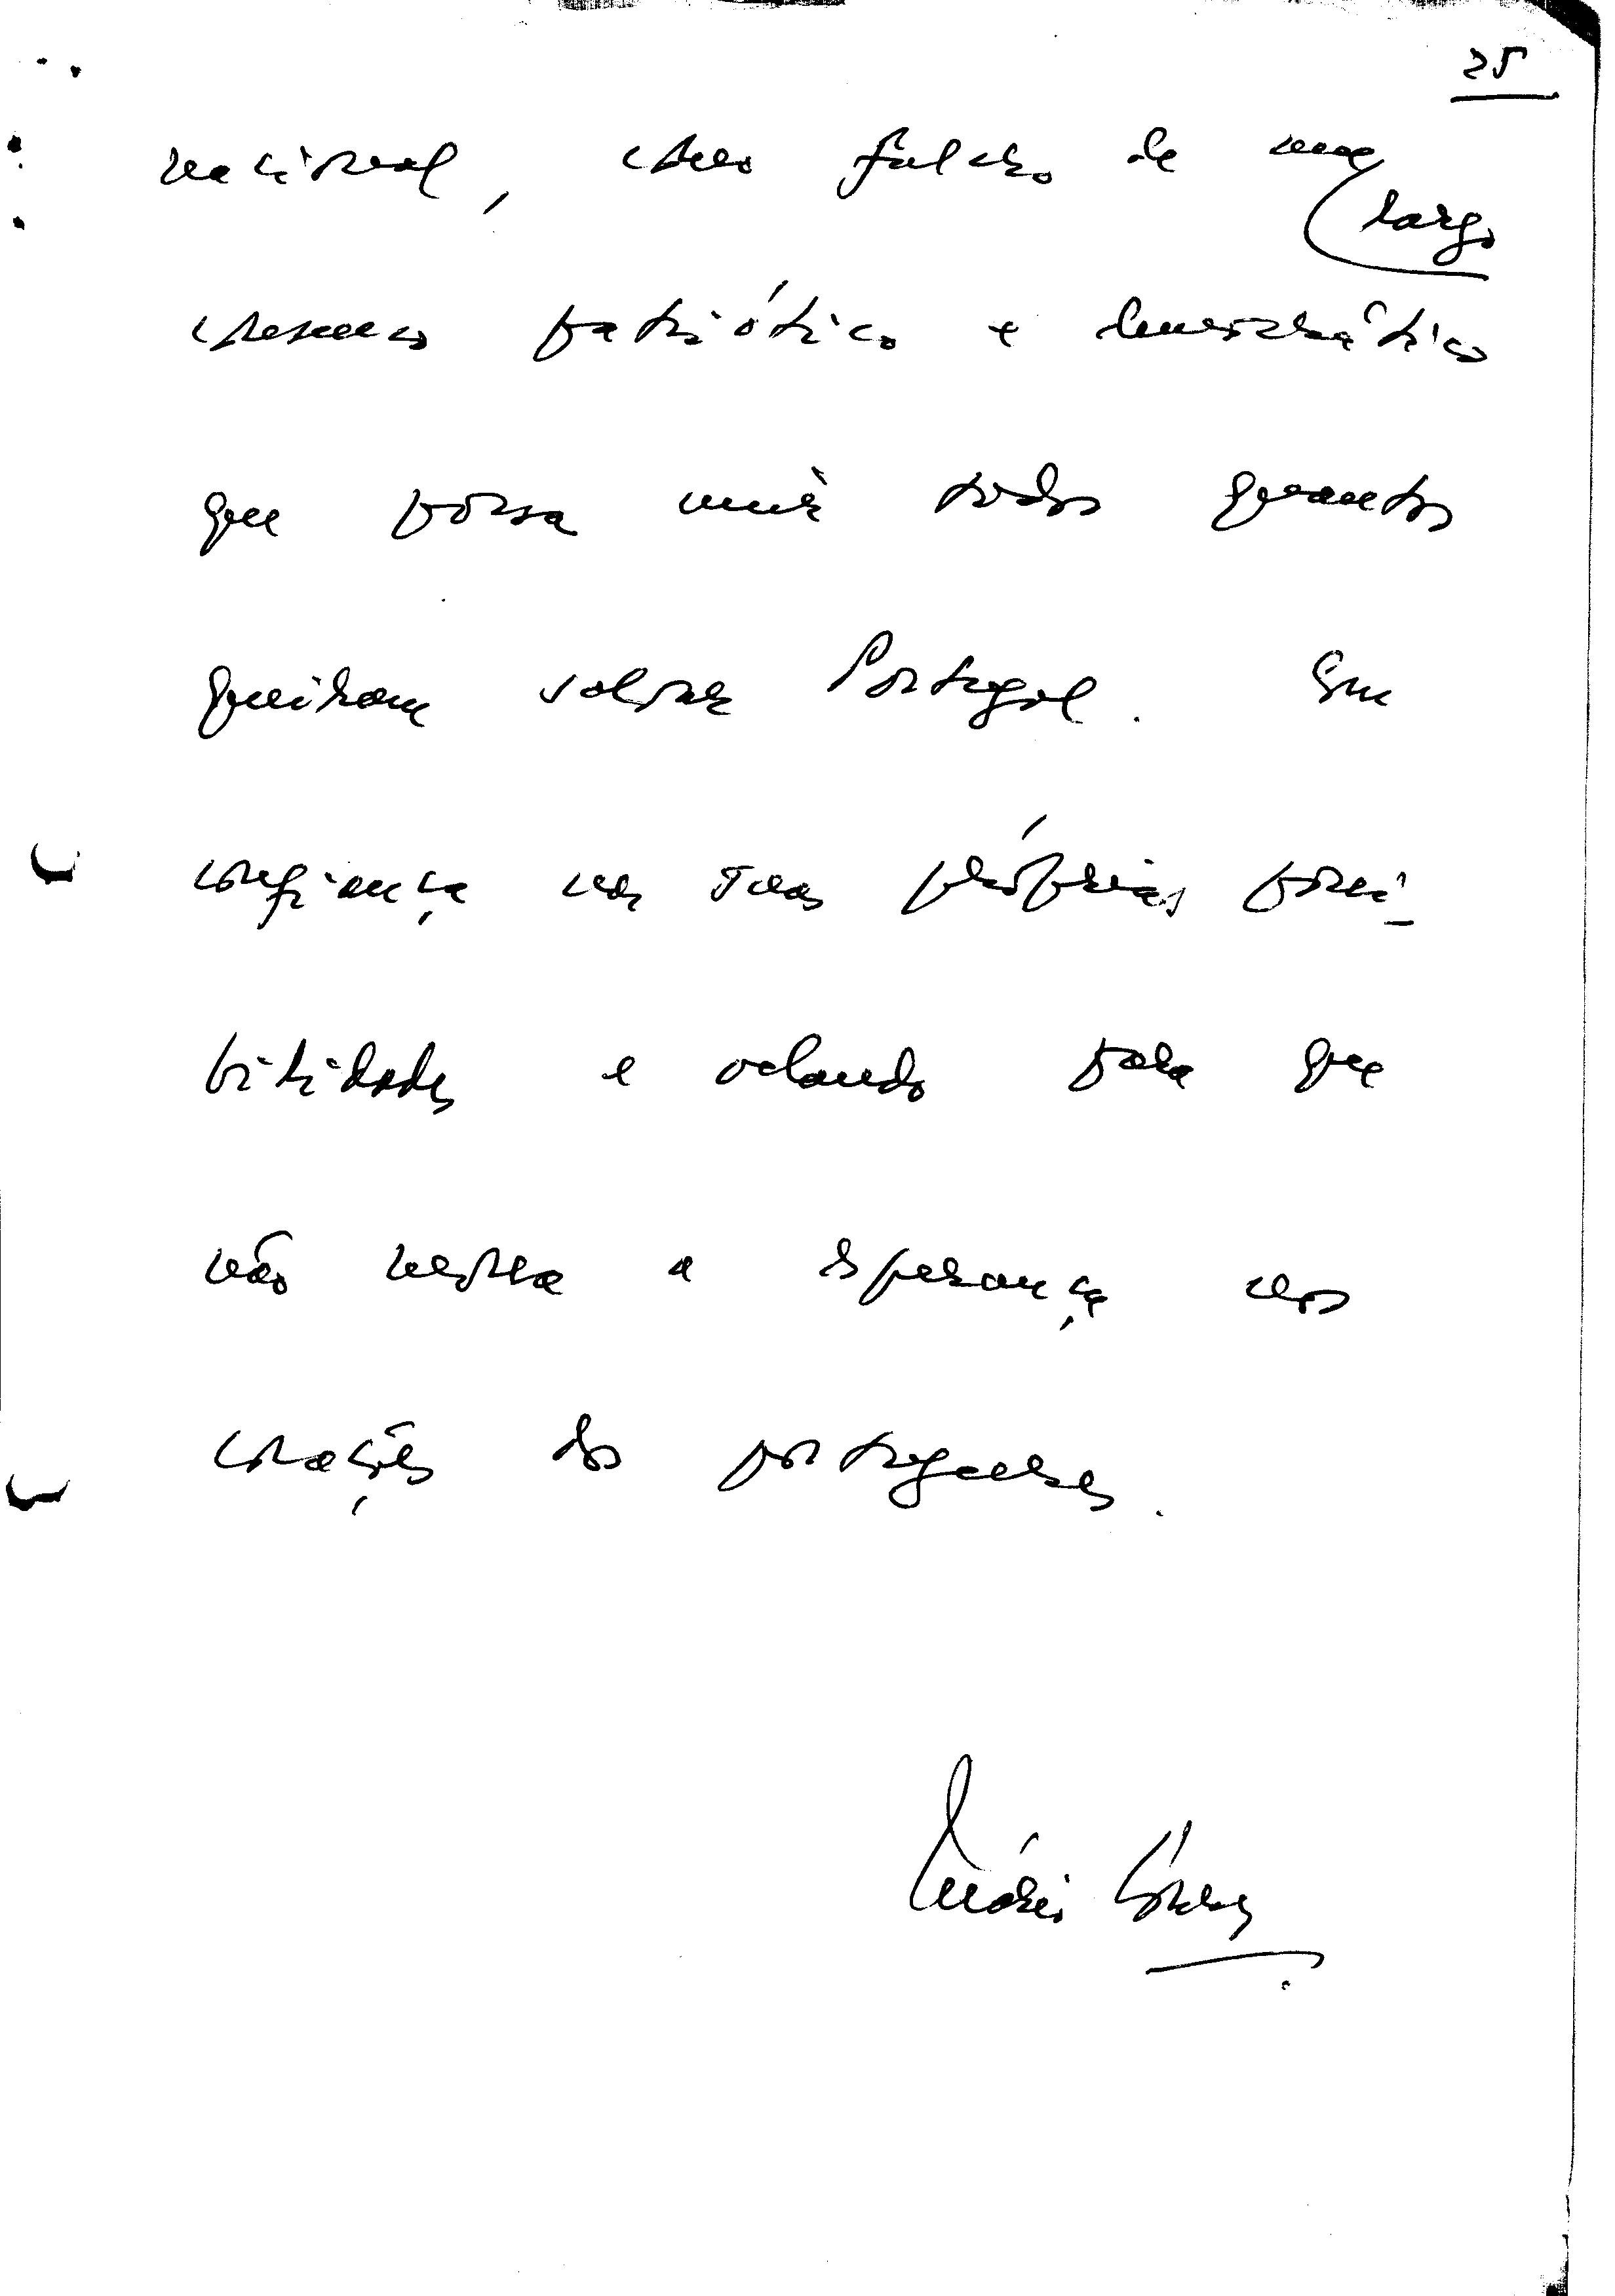 25
nacional, como fulcro de um
largo
consenso patriótico e democrático
que possa unir todos quantos
queiram salvar Portugal. Em
confiança nas suas próprias possi-
bilidades e velando para que
não morra a esperança nos
corações dos portugueses.
Mário Soares